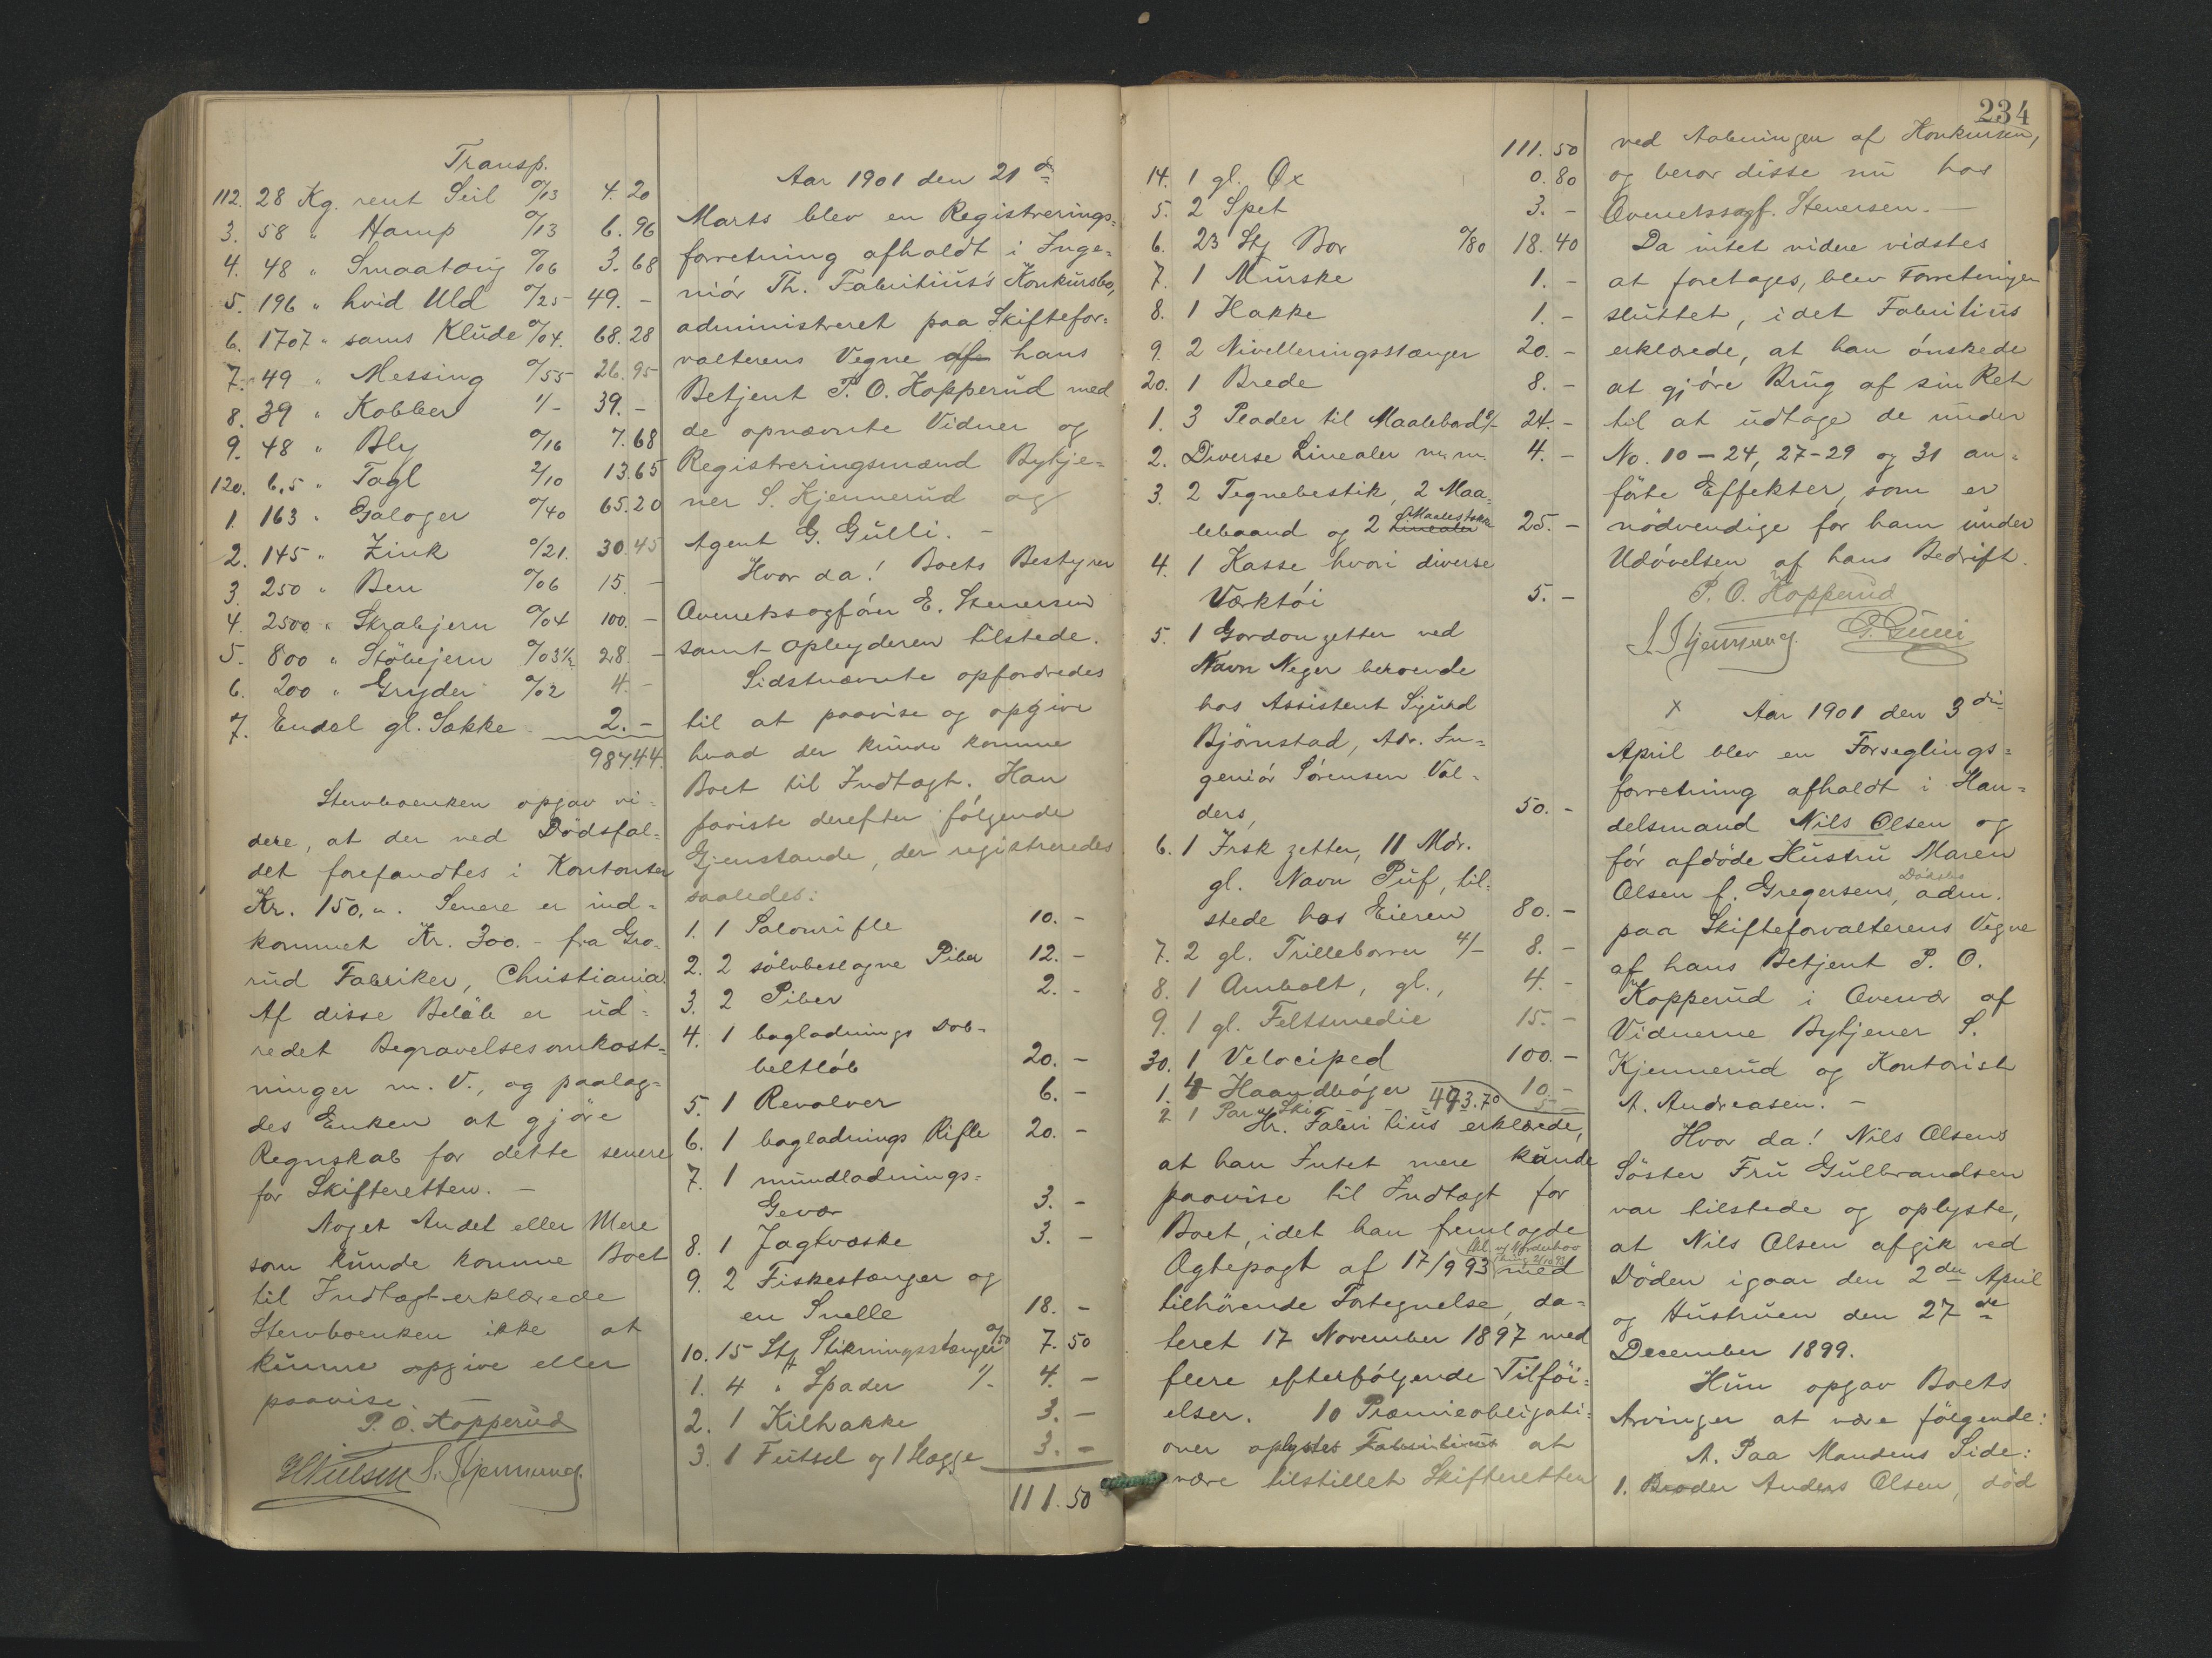 Transp.
112. 28 Kg. rent Seil 0/13 4.20
3. 58 " Hamp 0/13 6.96
4. 48 " Smaatøig 0/06 3.68
5. 196 " hvid Uld 0/25 49.-
6. 1707 " sams Klude 0/04. 68.28
7. 49 " Messing 0/55 26.95
8. 39 " Kobber 1/- 39.-
9. 48 " Bly 0/16 7.68
120. 6,5 " Tagl 2/10 13.65
1. 163 " Galoger 0/40 65.20
2. 145 " Zink 0/21. 30.45
3. 250 " Ben 0/06 15.-
4. 2500 " Skrabjern 0/04 100.-
5. 800 " Støbejern 0/03½ 28.-
6. 200 " Gryder 0/02 4.-
7. Endel gl. Sække 2.-
987.44.
Stervboenken opgav vi-
dere, at der ved Dødsfal-
det forefandtes i Kontanter
Kr. 150,". Senere er ind-
kommet Kr. 300.- fra Gro-
rud Fabriker, Christiania.
Af disse Beløb er ud-
redet Begravelsesomkost-
ninger m. V., og paalag-
des Enken at gjøre
Regnskab for dette senere
for Skifteretten. -
Noget Andet eller Mere
som kunde komme Boet
til Indtægt erklærede
Stervboenken ikke at
kunne opgive eller
paavise. -
P. O. Hopperud
HNielsen S. Kjennerud.
Aar 1901 den 21de
Marts blev en Registrerings-
forretning afholdt i Inge-
niør Th. Fabritius's Konkursbo,
administreret paa Skiftefor-
valterens Vegne af hans
Betjent P. O. Hopperud med
de opnævnte Vidner og
Registreringsmænd Bytje-
ner S. Kjennerud og
Agent G. Gulli. -
Hvor da! Boets Bestyrer
Overretssagfører E. Stenersen
samt Opbyderen tilstede.
Sidstnævnte opfordredes
til at paavise og opgive
hvad der kunde komme
Boet til Indtægt. Han
paviste derefter følgende
Gjenstande, der registreredes
saaledes:
1. 1 Salonrifle 10.-
2. 2 sølvbeslagne Piber 12.-
3. 2 Piber 2.-
4. 1 bagladnings Dob-
beltløb 20.-
5. 1 Revolver 6.-
6. 1 bagladnings Rifle 20.-
7. 1 mundladnings-
Gevær 3.-
8. 1 Jagtvæske 3.-
9. 2 Fiskestænger og
en Snelle 18.-
10. 15 Stk Stikningsstænger 0/50 7.50
1. 4 " Spader 1/- 4.-
2. 1 Kilhakke 3.-
3. 1 Feitsel og 1 Slægge 3.-
111.50
234
111.50
14. 1 gl. Øx 0.80
5. 2 Spet 3.-
6. 23 Stk Bor 0/80 18.40
7. 1 Murske 1.-
8. 1 Hakke 1.-
9. 2 Nivelleringsstænger 20.-
20. 1 Brede 8.-
1. 3 Plader til Maalebord 8/- 24.-
2. Diverse Linealer m. m. 4.-
3. 2 Tegnebestik, 2 Maa-
lebaand og 2 Linealer Maalestokke 25.-
4. 1 Kasse hvori diverse
Værktøi 5.-
5. 1 Gordonzetter ved
Navn Neger beroende
hos Assistent Sigurd
Bjørnstad, Adr. In-
geniør Sørensen Val-
ders, 50.-
6. 1 Irsk zetter, 11 Mdr.
gl. Navn Puf, til-
stede hos Eieren 80.-
7. 2 gl. Trillebører 4/- 8.-
8. 1 Ambolt, gl., 4.-
9. 1 gl. Feltsmedie 15.-
30. 1 Velociped 100.-
1. 4 Haandbøger 10.-
2 1 Par Ski 493.70 5-
Hr. Fabritius erklærede,
at han Intet mere kunde
paavise til Indtægt for
Boet, idet han fremlagde
Ægtepagt af 17/9 93 med
tilhørende Fortegnelse, da-
teret 17 November 1897 med
flere efterfølgende Tilføi-
elser. 10 Præmieobligati-
oner oplystes Fabritius at
være tilstillet Skifteretten
ved Aabningen af Konkursen,
og beror disse nu hos
Overretssagf. Stenersen. -
Da intet videre vidstes
at foretages, blev Forretningen
sluttet, idet Fabritius
erklærede, at han ønskede
at gjøre Brug af sin Ret
til at udtage de under
No. 10-24, 27-29 og 31 an-
førte Effekter, som er
nødvendige for ham under
Udøvelsen af hans Bedrift.
P. O. Hopperud
S. Kjennerud. G. Gulli
x Aar 1901 den 3die
April blev en Forseglings-
forretning afholdt i Han-
delsmand Nils Olsen og
før afdøde Hustru Maren
Olsen f. Gregersens Dødsbo, adm.
paa Skifteforvalterens Vegne
af hans Betjent P. O.
Hopperud i Overvær af
Vidnerne Bytjener S.
Kjennerud og Kontorist
A. Andreasen. -
Hvor da! Nils Olsens
Søster Fru Gulbrandsen
var tilstede og oplyste,
at Nils Olsen afgik ved
Døden igaar den 2den April
og Hustruen den 27de
December 1899.
Hun opgav Boets
Arvinger at være følgende:
A. Paa Mandens Side:
1. Broder Anders Olsen, død